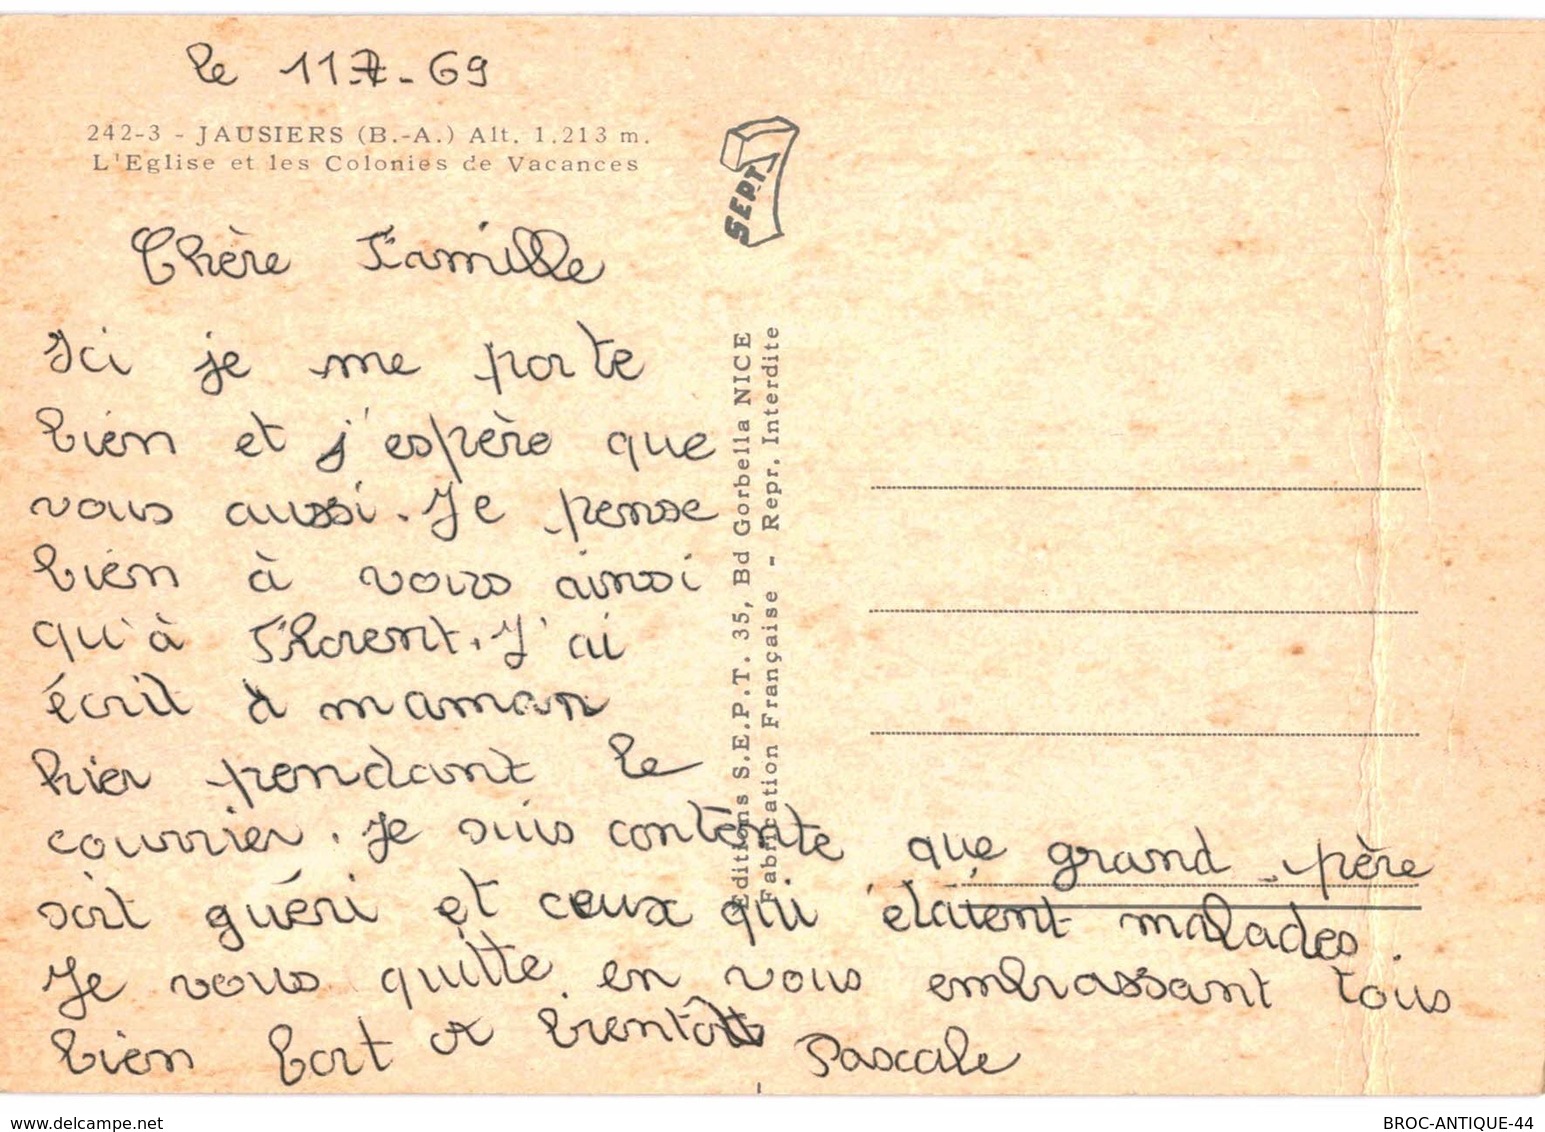 le 11-7-69
242-3 - JAUSIERS (B.-A.) Alt. 1.213 m.
L'Eglise et les Colonies de Vacances
SEPT
Chère Famille
Ici je me porte
bien et j'espère que
vous aussi. Je pense
bien à vous ainsi
qu'à Florent. J'ai
écrit à maman
hier pendant le
courrier. Je suis contente que grand-père
soit guéri et ceux qui étaient malades.
Je vous quitte en vous embrassant tous
bien fort à bientôt Pascale
Editions S.E.P.T. 35, Bd Gorbella NICE
Fabrication Française - Repr. Interdite
BROC-ANTIQUE-44